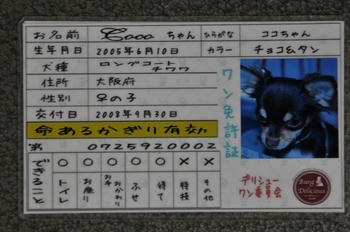 お名前 Cooo ちゃん ひらがな ココちゃん
生年月日 2005年6月10日 カラー チョコ&タン
犬種 ロングコートチワワ
住所 大阪府
性別 女の子
交付日 2008年9月30日
命あるかぎり有効
第 0725920002
ワン免許証
できること ○ ○ ○ ○ ○ × ×
トイレ お座り お手おかわり ふせ 待て 特技 その他
デリシュー
ワン委員会
Burg
Delicious